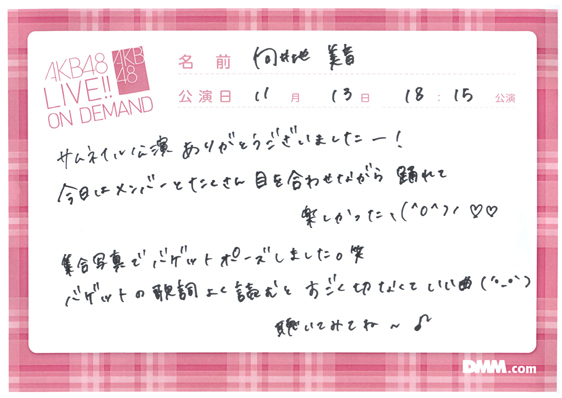 AKB48
LIVE!!
ON DEMAND
AKB
48
名前 向井地 美音
公演日 11月 13日 18:15 公演
サムネイル公演 ありがとうございましたー!
今日はメンバーとたくさん 目を合わせながら 踊れて
楽しかった、(^O^)ノ ♡♡
集合写真で バゲットポーズしました。笑
バゲットの歌詞よく読むと すごく切なくていい曲(°_°`)
聴いてみてね〜♪
DMM.com